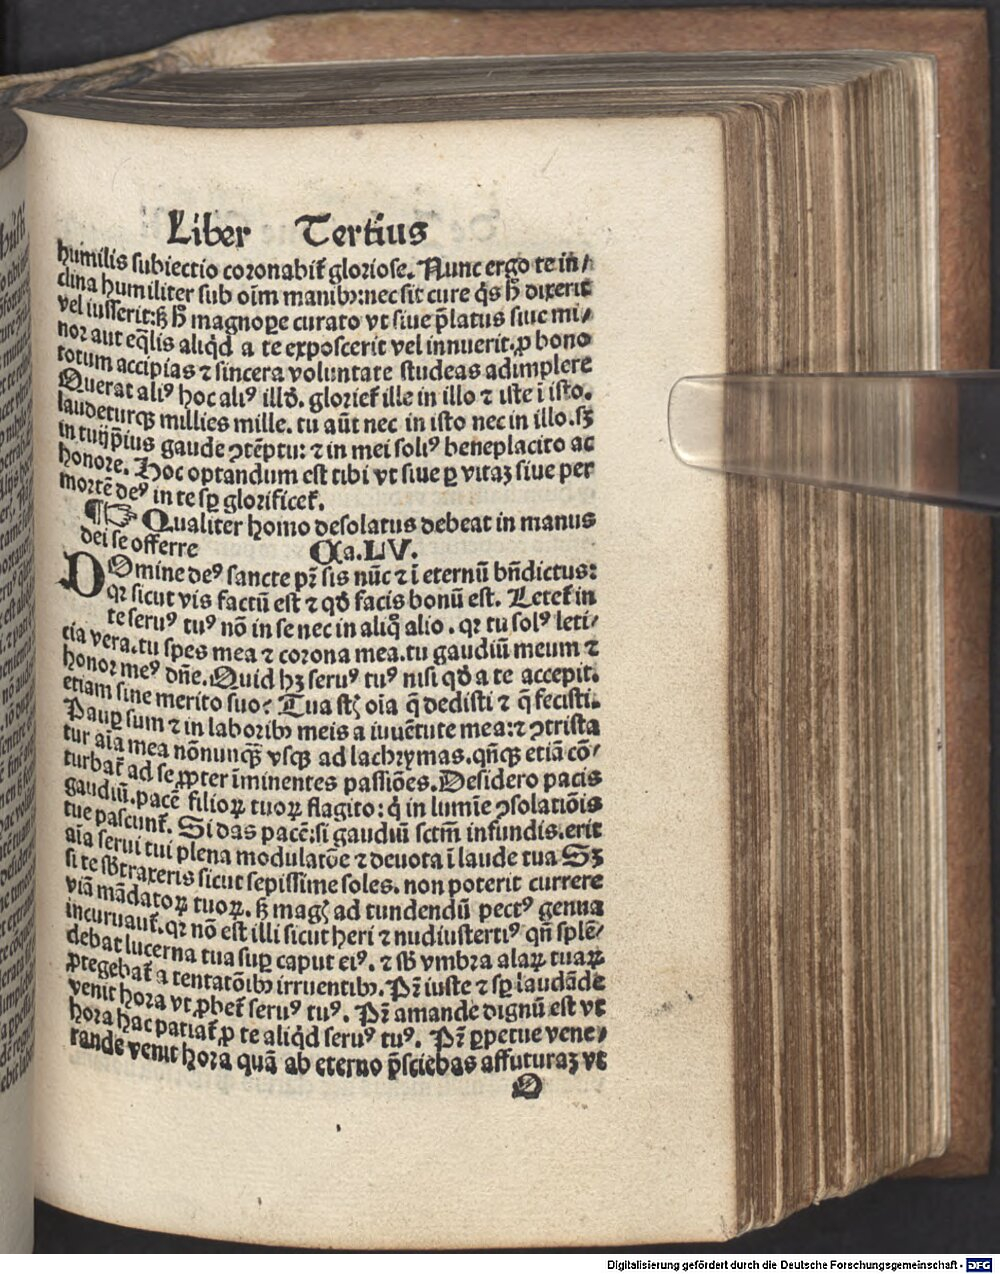 Liber Tertius
humilis subiectio coronabit᷑ gloriose. Nunc ergo te in/
clina humiliter sub oīm manibꝫ: nec sit cure q̇s h̄ dixerit
vel iusserit: sꝫ h̄ magnoꝑe curato vt siue p̄latus siue mi/
nor aut eq̄lis aliq̇d a te exposcerit vel innuerit. ꝓ bono
totum accipias ⁊ sincera voluntate studeas adimplere
Querat aliꝰ hoc aliꝰ illḋ. gloriet᷑ ille in illo ⁊ iste ī isto.
laudeturqꝫ millies mille. tu aūt nec in isto nec in illo. sꝫ
in tuijp̄ius gaude ꝯtēptu: ⁊ in mei soliꝰ beneplacito ac
honore. Hoc optandum est tibi vt siue ꝑ vitaꝫ siue per
mortē deꝰ in te sꝑ glorificet᷑.
¶☞ Qualiter homo desolatus debeat in manus
dei se offerre Ca. LV.
DOmine deꝰ sancte pr̄ sis nūc ⁊ ī eternū bn̄dictus:
qꝛ sicut vis factū est ⁊ qḋ facis bonū est. Letet᷑ in
te seruꝰ tuꝰ nō in se nec in aliq̊ alio. qꝛ tu solꝰ leti/
cia vera. tu spes mea ⁊ corona mea. tu gaudiū meum ⁊
honor meꝰ dn̄e. Quid hꝫ seruꝰ tuꝰ nisi qḋ a te accepit.
etiam sine merito suo? Tua st̄ oīa q̄ dedisti ⁊ q̄ fecisti.
Pauꝑ sum ⁊ in laboribꝫ meis a iuuētute mea: ⁊ ꝯtrista
tur aīa mea nōnunqꝫ̄ vsqꝫ ad lachrymas. qn̄qꝫ etiā cō/
turbat᷑ ad se ꝓpter īminentes passiōes. Desidero pacis
gaudiū. pacē filioꝝ tuoꝝ flagito: q̇ in lumīe ꝯsolatiōis
tue pascunt᷑. Si das pacē: si gaudiū sctm̄ infundis. erit
aīa serui tui plena modulatōe ⁊ deuota ī laude tua Sꝫ
si te sb̄traxeris sicut sepissime soles. non poterit currere
viā mādatoꝝ tuoꝝ. sꝫ mag̣ ad tundendū pectꝰ genua
incuruant᷑. qꝛ nō est illi sicut heri ⁊ nudiustertiꝰ qn̄ splē/
debat lucerna tua suꝑ caput eiꝰ. ⁊ sb̄ vmbra alaꝝ tuaꝝ
ꝓtegebat᷑ a tentatōibꝫ irruentibꝫ. Pr̄ iuste ⁊ sꝑ laudāde
venit hora vt ꝓbet᷑ seruꝰ tuꝰ. Pr̄ amande dignū est vt
hora hac patiat᷑ ꝓ te aliq̇d seruꝰ tuꝰ. Pr̄ ꝑpetue vene/
rande venit hora quā ab eterno p̄sciebas affuturaꝫ vt
O
Digitalisierung gefördert durch die Deutsche Forschungsgemeinschaft - DFG